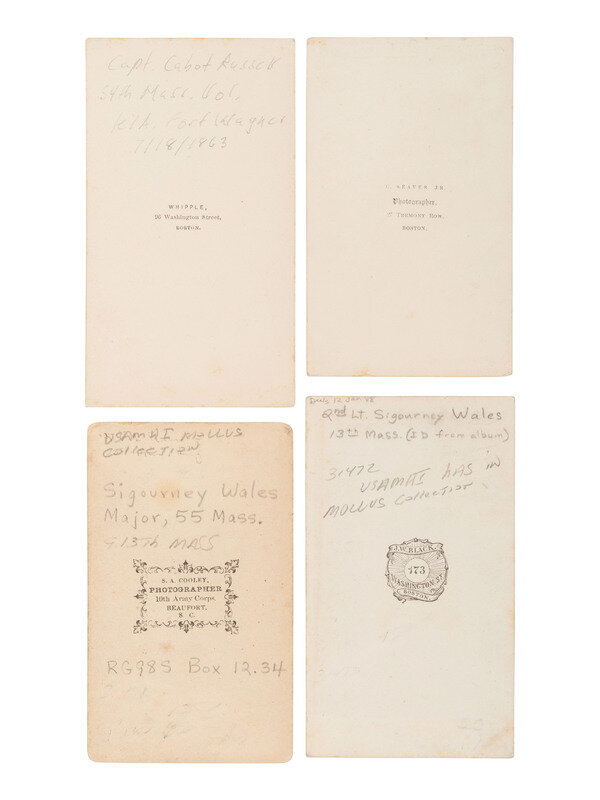 Capt. Cabot Russell
54th Mass. Vol.
KIA. Fort Wagner
7/18/1863
WHIPPLE,
96 Washington Street,
BOSTON.
SEAVER JR
Photographer,
27 TREMONT ROW,
BOSTON.
USAMHI MOLLUS
COLLECTION
Sigourney Wales
Major, 55 Mass.
+ 13TH MASS
S. A. COOLEY,
PHOTOGRAPHER
10th Army Corps.
BEAUFORT,
S. C.
RG98S Box 12.34
12 Jan 98
2nd Lt. Sigourney Wales
13th Mass. (ID from album)
31472
USAMHI HAS IN
MOLLUS COLLECTION
J.W. BLACK,
173
WASHINGTON ST.
BOSTON